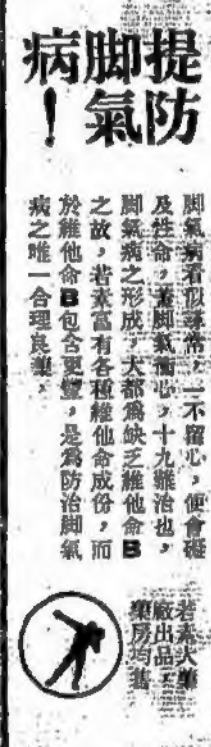 提防
脚氣
病！
脚氣病看似尋常，一不留心，便會礙
及性命，蓋脚氣衝心，十九難治也，
脚氣病之形成，大都爲缺乏維他命B
之故，若素富有各種維他命成份，而
於維他命B包含更豐，是爲防治脚氣
病之唯一合理良藥，
若素大藥
廠出品，
藥房均售